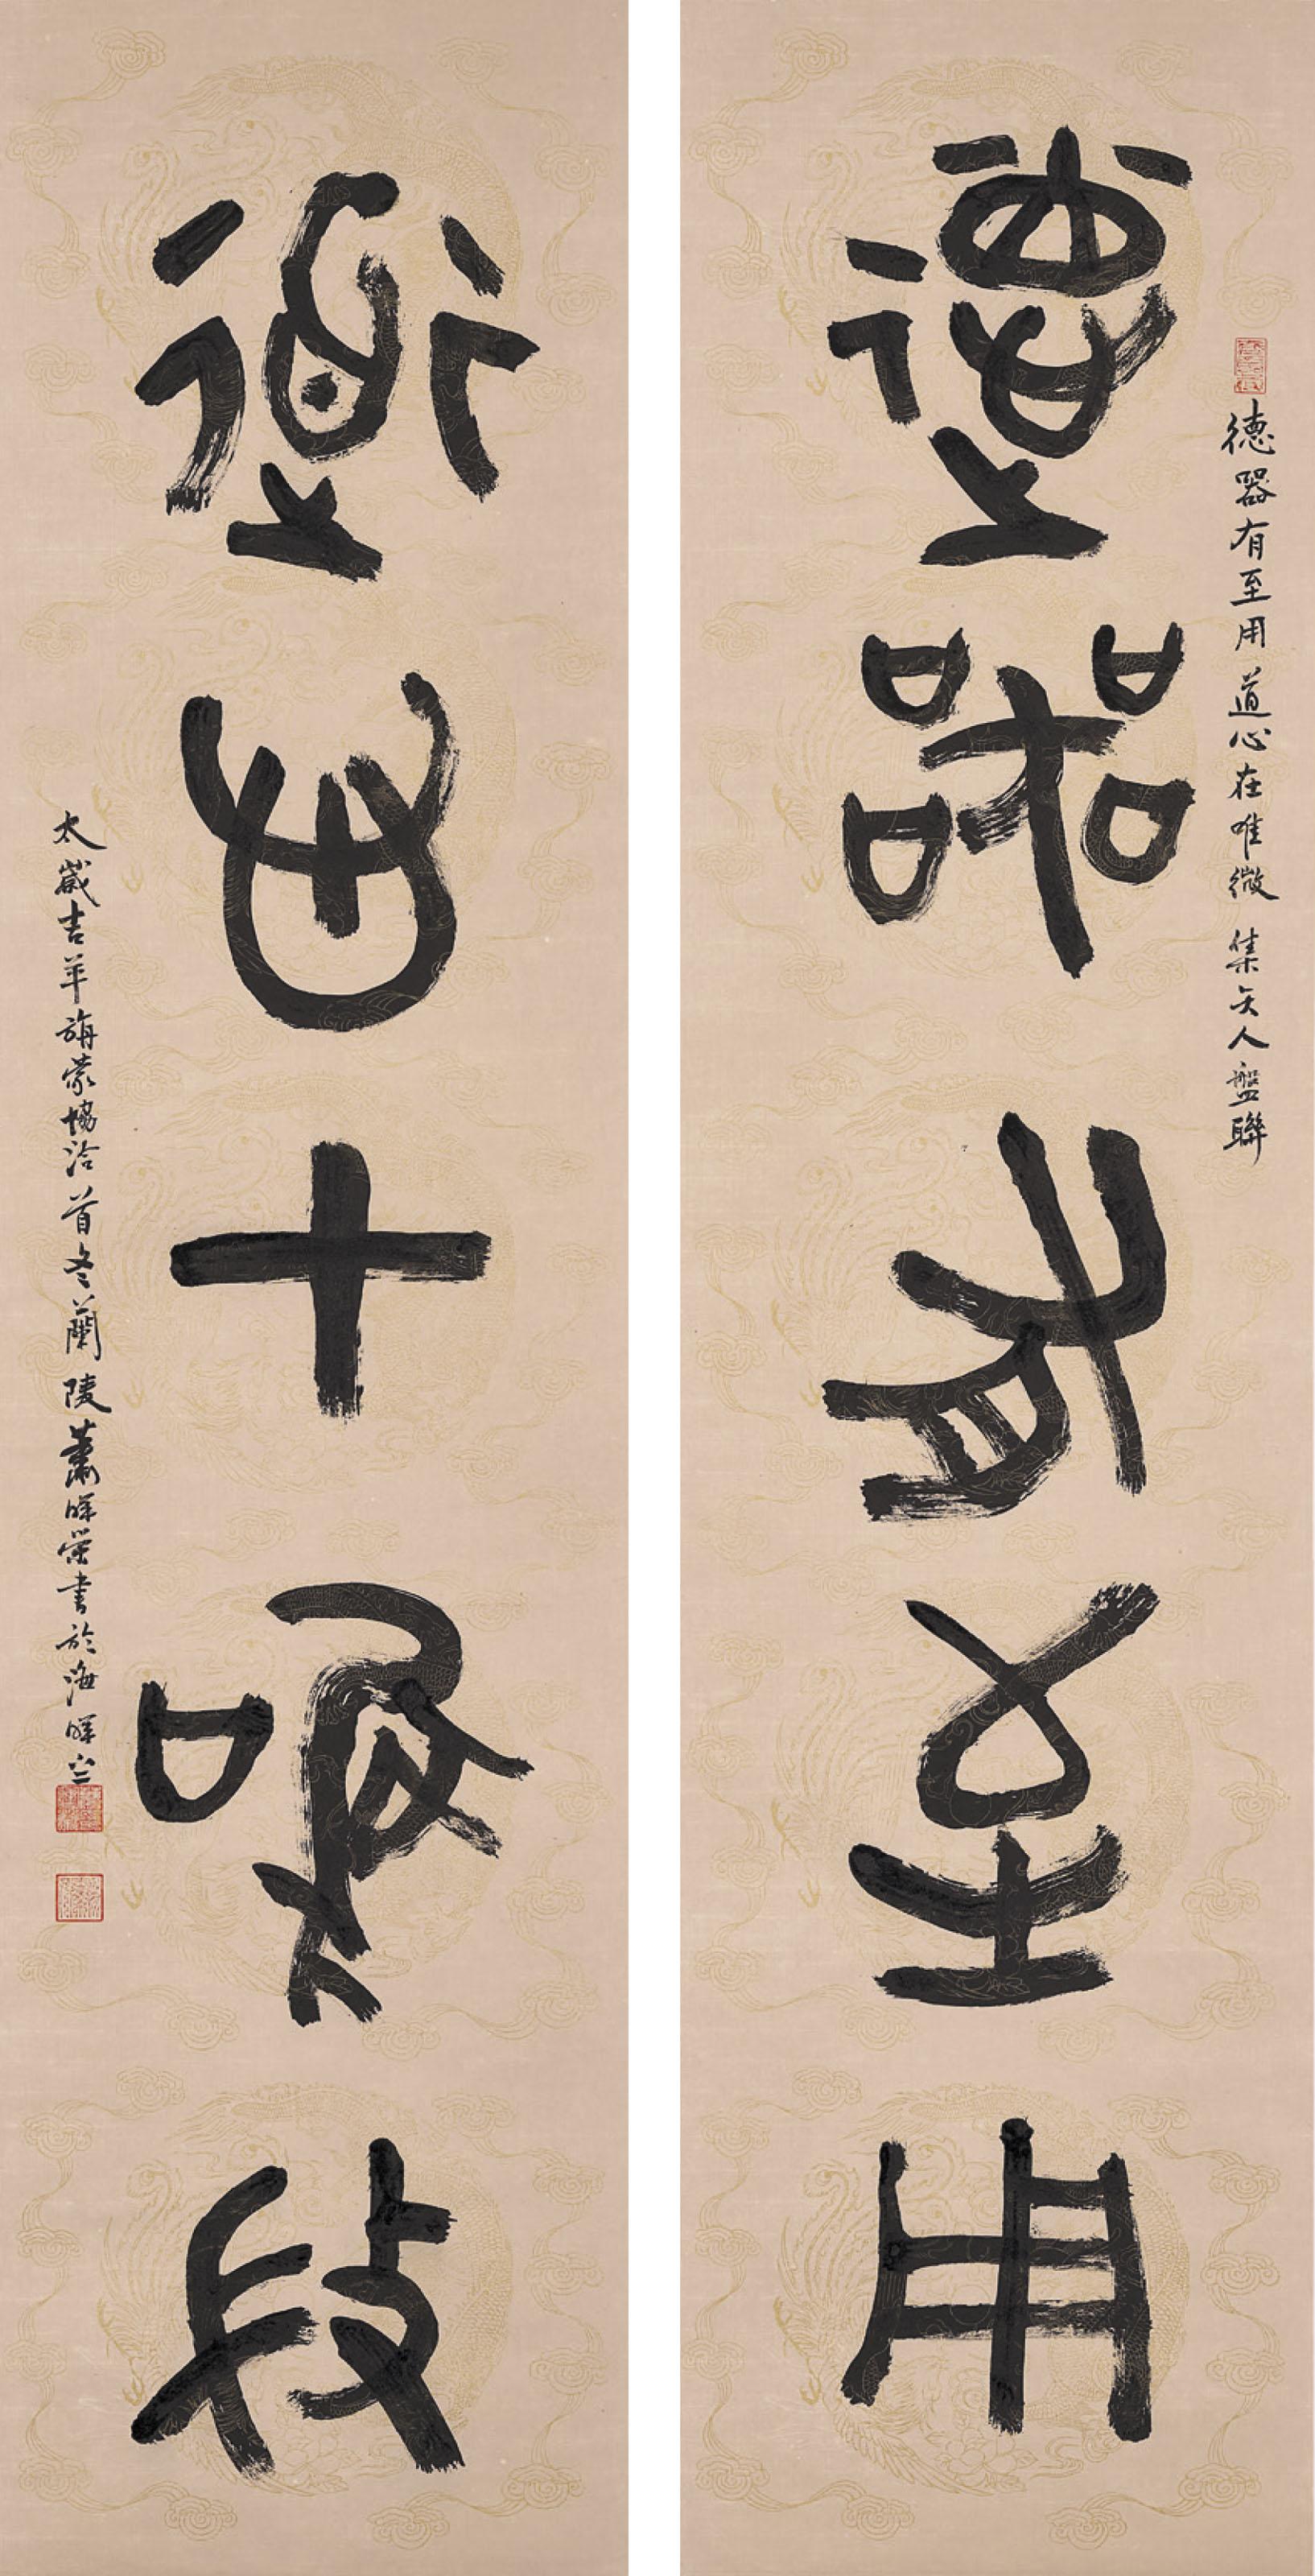 德器有至用
德器有至用道心在唯微 集夨人盤聯
道心在唯微
太歲吉羊旃蒙協洽首冬蘭陵蕭暉榮書於海暉堂